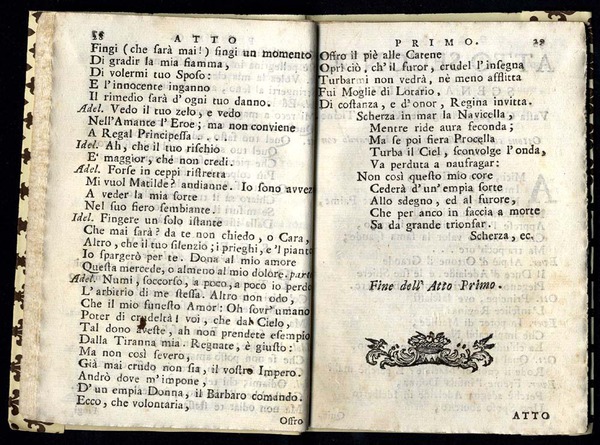 28 ATTO
Fingi (che sarà mai!) fingi un momento
Di gradir la mia fiamma,
Di volermi tuo Sposo:
E l'innocente inganno
Il rimedio sarà d'ogni tuo danno.
Adel. Vedo il tuo zelo, e vedo
Nell'Amante l'Eroe; ma non conviene
A Regal Principessa ....
Idel. Ah, che il tuo rischio
E' maggior, che non credi.
Adel. Forse in ceppi ristretta
Mi vuol Matilde? andianne. Io sono avvez
A veder la mia sorte
Nel suo fiero sembiante.
Idel. Fingere un solo istante
Che mai sarà? da te non chiedo, o Cara,
Altro, che il tuo silenzio; i prieghi, e 'l piant
Io spargerò per te. Dona al mio amore
Questa mercede, o almeno al mio dolore. parte
Adel. Numi, soccorso, a poco, a poco io perdo
L'arbitrio di me stessa. Altro non odo,
Che il mio funesto Amor: Oh sovr'umano
Poter di crudeltà! voi, che dal Cielo,
Tal dono aveste, ah non prendete esempio
Dalla Tiranna mia. Regnate, è giusto:
Ma non così severo,
Già mai crudo non sia, il vostro Impero.
Andrò dove m'impone,
D'un empia Donna, il Barbaro comando.
Ecco, che volontaria,
Offro
PRIMO. 29
Offro il piè alle Catene
Opri ciò, ch'il furor, crudel l'insegna
Turbarmi non vedrà, nè meno afflitta
Fui Moglie di Lotario,
Di costanza, e d'onor, Regina invitta.
Scherza in mar la Navicella,
Mentre ride aura feconda;
Ma se poi fiera Procella
Turba il Ciel, sconvolge l'onda,
Va perduta a naufragar:
Non così questo mio core
Cederà d'un'empia sorte
Allo sdegno, ed al furore,
Che per anco in faccia a morte
Sa da grande trionfar.
Scherza, ec.
Fine dell' Atto Primo.
ATTO